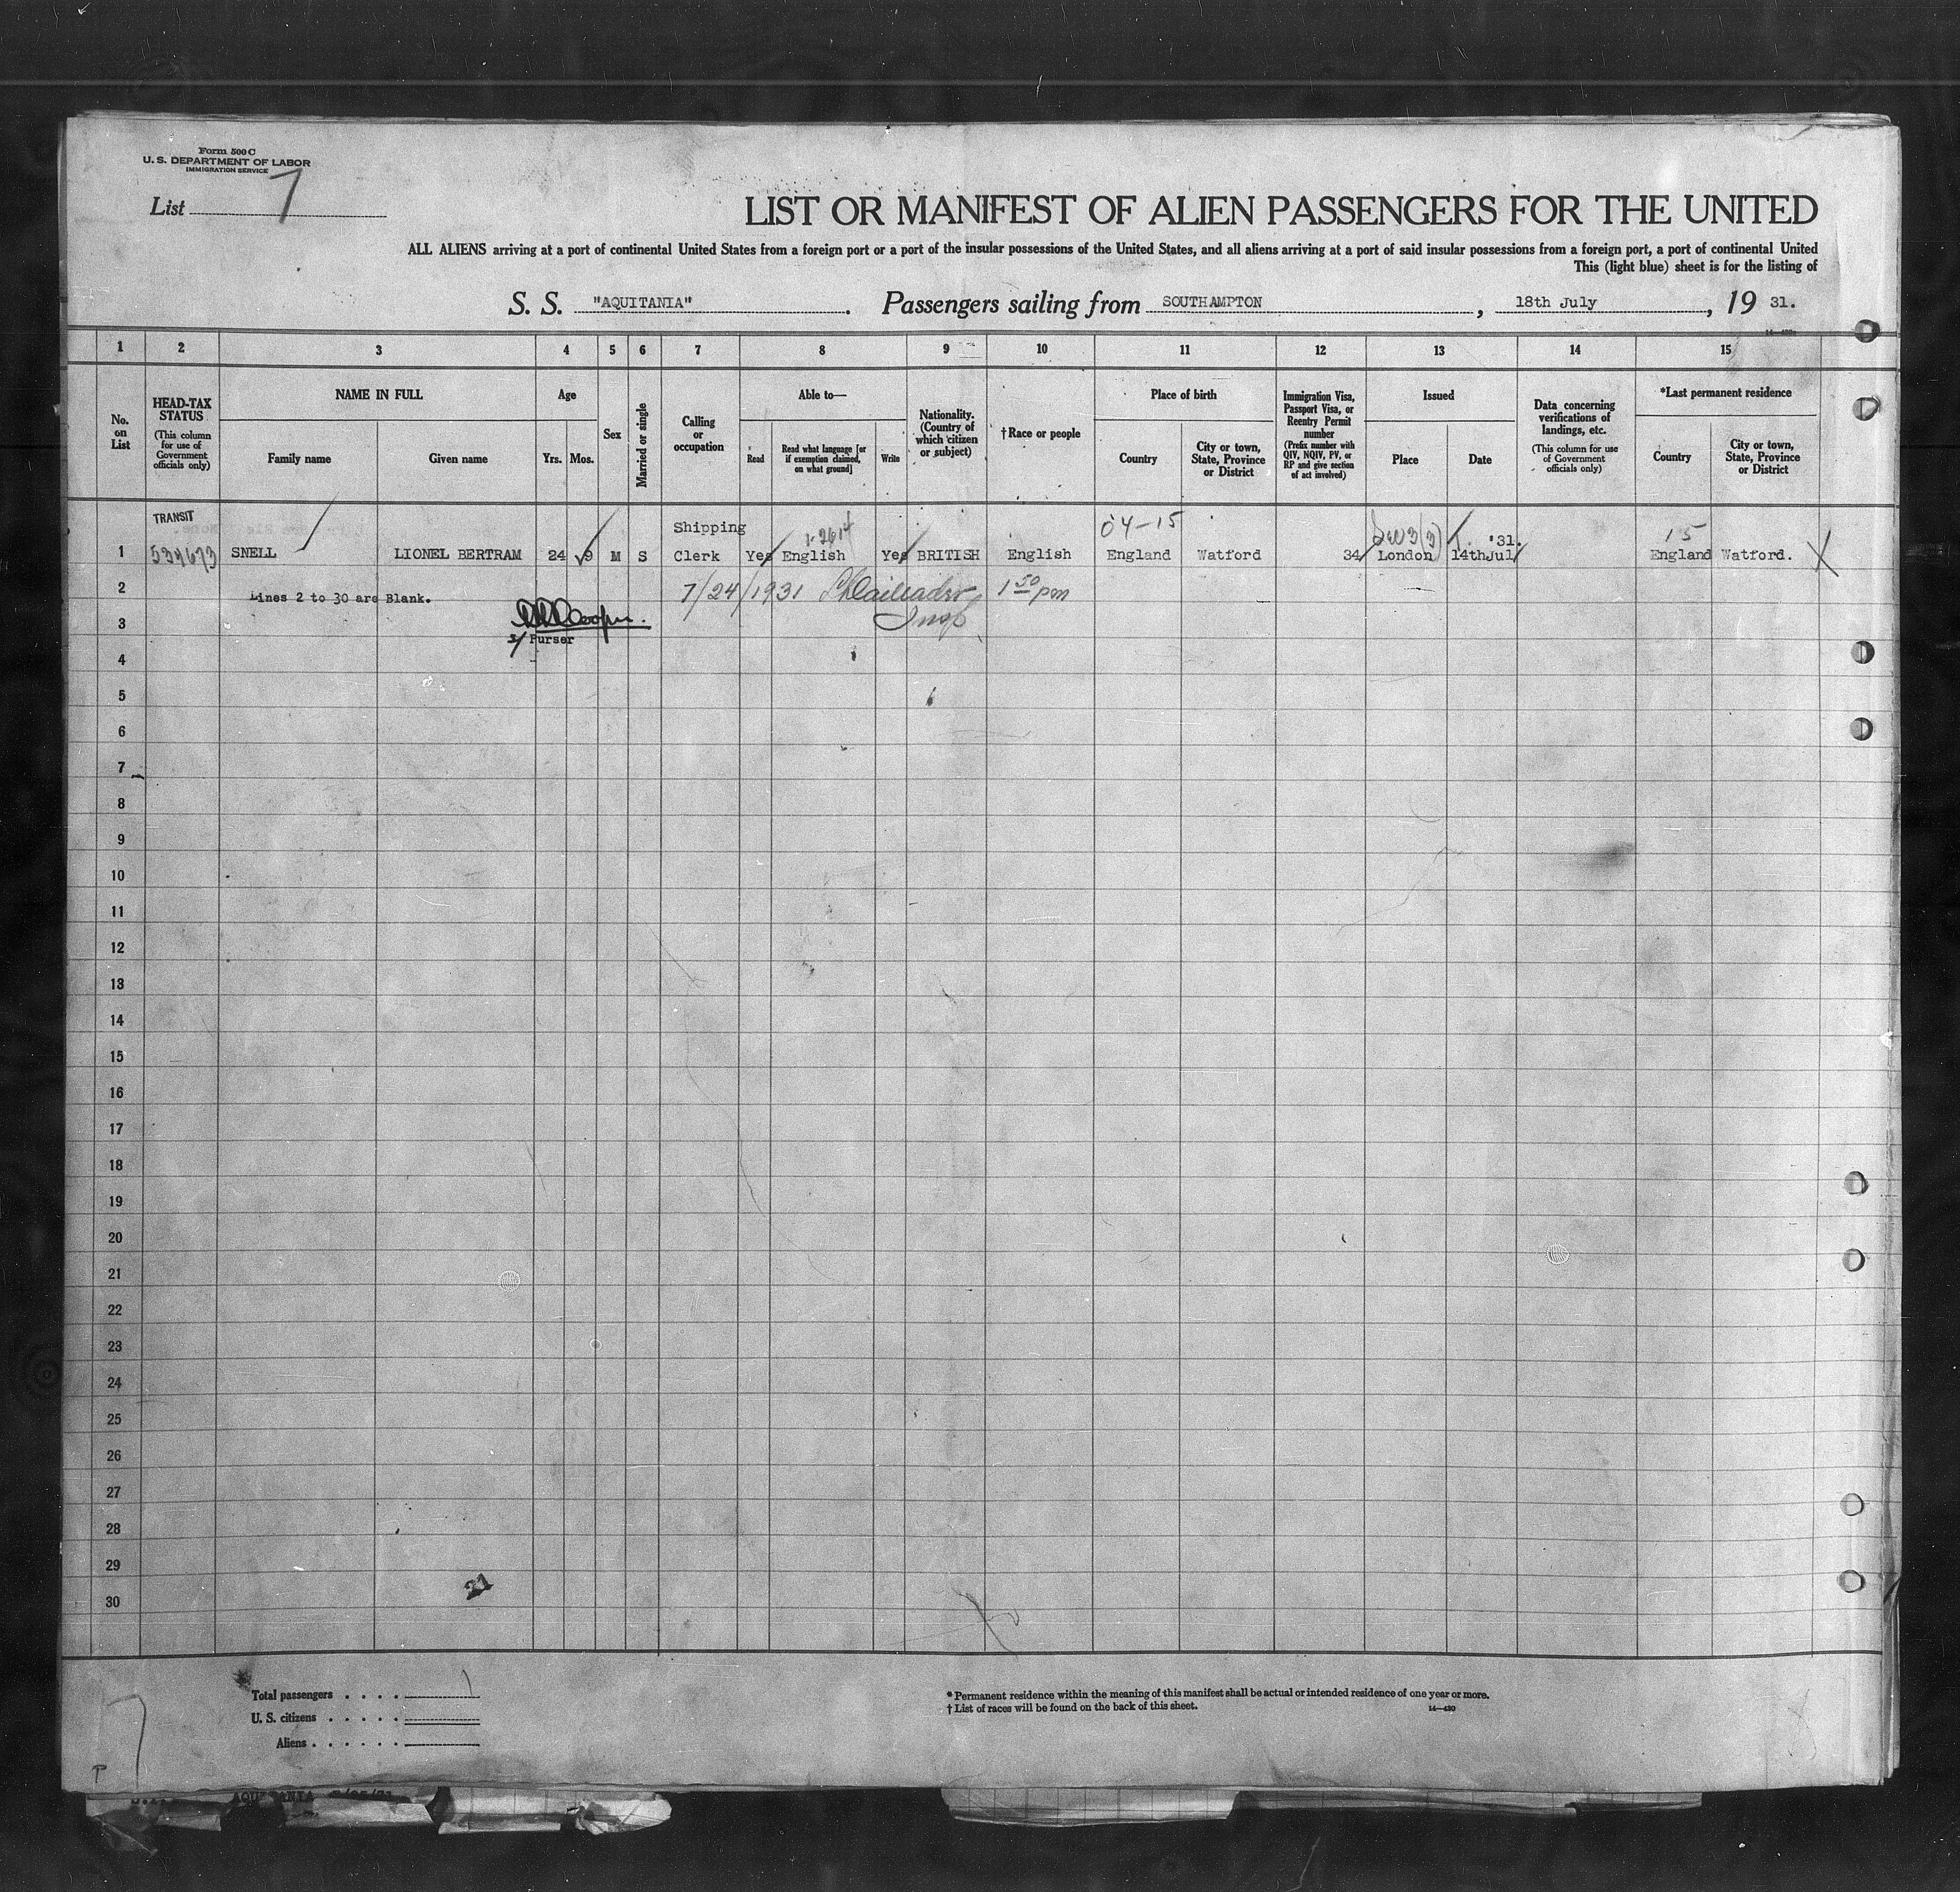 Form 500 C
U. S. DEPARTMENT OF LABOR
IMMIGRATION SERVICE
List 7
LIST OR MANIFEST OF ALIEN PASSENGERS FOR THE UNITED
ALL ALIENS arriving at a port of continental United States from a foreign port or a port of the insular possessions of the United States, and all aliens arriving at a port of said insular possessions from a foreign port, a port of continental United
This (light blue) sheet is for the listing of
S. S. "AQUITANIA". Passengers sailing from SOUTHAMPTON, 18th July, 19 31.
1 2 3 4 5 6 7 8 9 10 11 12 13 14 15
No. on List
HEAD-TAX STATUS
(This column for use of Government officials only)
NAME IN FULL
Family name
Given name
Age
Yrs. Mos.
Sex
Married or single
Calling or occupation
Able to—
Read
Read what language [or if exemption claimed, on what ground]
Write
Nationality. (Country of which citizen or subject)
†Race or people
Place of birth
Country
City or town, State, Province or District
Immigration Visa, Passport Visa, or Reentry Permit number
(Prefix number with QIV, NQIV, PV, or RP and give section of act involved)
Issued
Place
Date
Data concerning verifications of landings, etc.
(This column for use of Government officials only)
*Last permanent residence
Country
City or town, State, Province or District
TRANSIT Shipping 04-15 3(3) '31. 15
1 534673 SNELL LIONEL BERTRAM 24 9 M S Clerk Yes English Yes BRITISH English England Watford 34 London 14thJul England Watford. X
2 7/24/1931 1 50 pm
Lines 2 to 30 are Blank.
3 Insp
Purser
4
5
6
7
8
9
10
11
12
13
14
15
16
17
18
19
20
21
22
23
24
25
26
27
28
29
21
30
Total passengers . . . . 1
U. S. citizens . . . . .
Aliens . . . . . .
* Permanent residence within the meaning of this manifest shall be actual or intended residence of one year or more.
† List of races will be found on the back of this sheet.
14—430
7
P
AQUITANIA